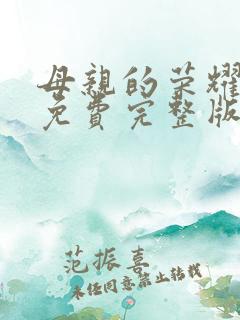 母親的荣耀
免費完整版
范振喜
未任同意禁止转载